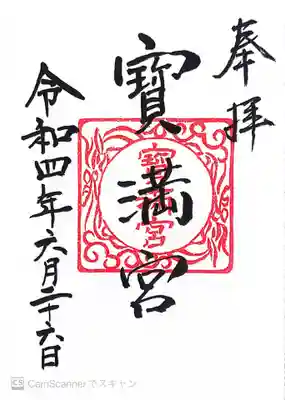 奉拝
寳満宮
寳満宮
令和四年六月二十六日
CS CamScannerでスキャン